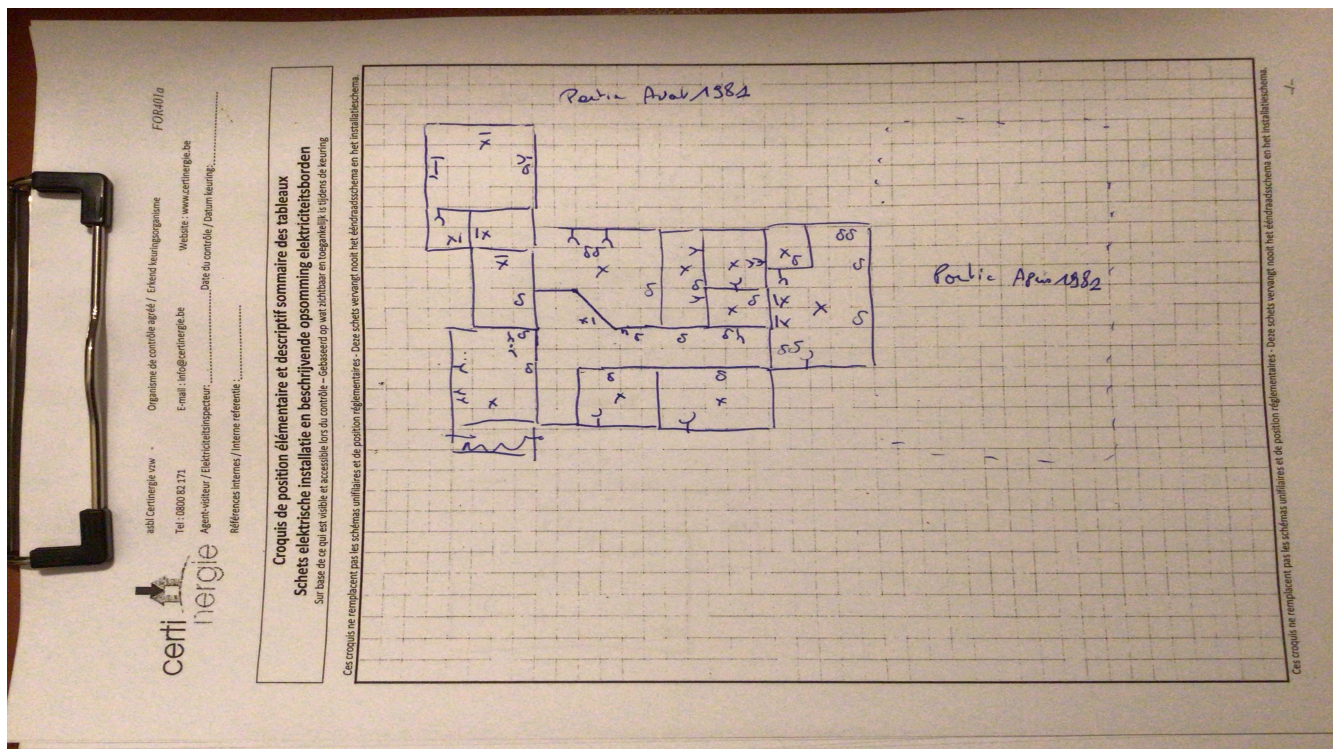 certi
nergie
asbl Certinergie vzw - Organisme de contrôle agréé / Erkend keuringsorganisme FOR401a
Tel : 0800 82 171 E-mail : info@certinergie.be Website : www.certinergie.be
Agent-visiteur / Elektriciteitsinspecteur: Date du contrôle / Datum keuring:
Références internes / Interne referentie :
Croquis de position élémentaire et descriptif sommaire des tableaux
Schets elektrische installatie en beschrijvende opsomming elektriciteitsborden
Sur base de ce qui est visible et accessible lors du contrôle – Gebaseerd op wat zichtbaar en toegankelijk is tijdens de keuring
Ces croquis ne remplacent pas les schémas unifilaires et de position réglementaires - Deze schets vervangt nooit het ééndraadsschema en het installatieschema.
Partie Avant 1981
Partie Après 1982
Ces croquis ne remplacent pas les schémas unifilaires et de position réglementaires - Deze schets vervangt nooit het ééndraadsschema en het installatieschema.